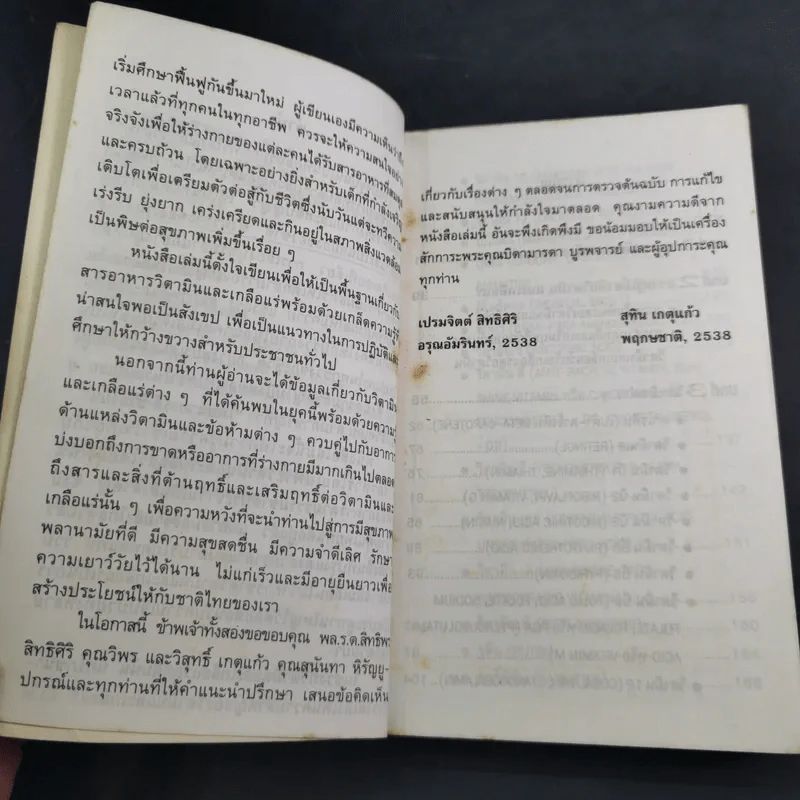 เริ่มศึกษาฟื้นฟูกันขึ้นมาใหม่ ผู้เขียนเองมีความเห็นว่าถึง
เวลาแล้วที่ทุกคนในทุกอาชีพ ควรจะให้ความสนใจอย่าง
จริงจังเพื่อให้ร่างกายของแต่ละคนได้รับสารอาหารที่สมบูรณ์
และครบถ้วน โดยเฉพาะอย่างยิ่งสำหรับเด็กที่กำลังเจริญ
เติบโตเพื่อเตรียมตัวต่อสู้กับชีวิตซึ่งนับวันแต่จะทวีความ
เร่งรีบ ยุ่งยาก เคร่งเครียดและกินอยู่ในสภาพสิ่งแวดล้อม
เป็นพิษต่อสุขภาพเพิ่มขึ้นเรื่อย ๆ
หนังสือเล่มนี้ตั้งใจเขียนเพื่อให้เป็นพื้นฐานเกี่ยวกับ
สารอาหารวิตามินและเกลือแร่พร้อมด้วยเกล็ดความรู้ที่
น่าสนใจพอเป็นสังเขป เพื่อเป็นแนวทางในการปฏิบัติและ
ศึกษาให้กว้างขวางสำหรับประชาชนทั่วไป
นอกจากนี้ท่านผู้อ่านจะได้ข้อมูลเกี่ยวกับวิตามิน
และเกลือแร่ต่าง ๆ ที่ได้ค้นพบในยุคนี้พร้อมด้วยความรู้
ด้านแหล่งวิตามินและข้อห้ามต่าง ๆ ควบคู่ไปกับอาการ
บ่งบอกถึงการขาดหรืออาการที่ร่างกายมีมากเกินไปตลอด
ถึงสารและสิ่งที่ต้านฤทธิ์และเสริมฤทธิ์ต่อวิตามินและ
เกลือแร่นั้น ๆ เพื่อความหวังที่จะนำท่านไปสู่การมีสุขภาพ
พลานามัยที่ดี มีความสุขสดชื่น มีความจำดีเลิศ รักษา
ความเยาว์วัยไว้ได้นาน ไม่แก่เร็วและมีอายุยืนยาวเพื่อ
สร้างประโยชน์ให้กับชาติไทยของเรา
ในโอกาสนี้ ข้าพเจ้าทั้งสองขอขอบคุณ พล.ร.ต.สิทธิพร
สิทธิศิริ คุณวิพร และวิสุทธิ์ เกตุแก้ว คุณสุนันทา หิรัญยู-
ปกรณ์และทุกท่านที่ให้คำแนะนำปรึกษา เสนอข้อคิดเห็น
เกี่ยวกับเรื่องต่าง ๆ ตลอดจนการตรวจต้นฉบับ การแก้ไข
และสนับสนุนให้กำลังใจมาตลอด คุณงามความดีจาก
หนังสือเล่มนี้ อันจะพึงเกิดพึงมี ขอน้อมมอบให้เป็นเครื่อง
สักการะพระคุณบิดามารดา บูรพจารย์ และผู้อุปการะคุณ
ทุกท่าน
เปรมจิตต์ สิทธิศิริ สุทิน เกตุแก้ว
อรุณอัมรินทร์, 2538 พฤกษชาติ, 2538